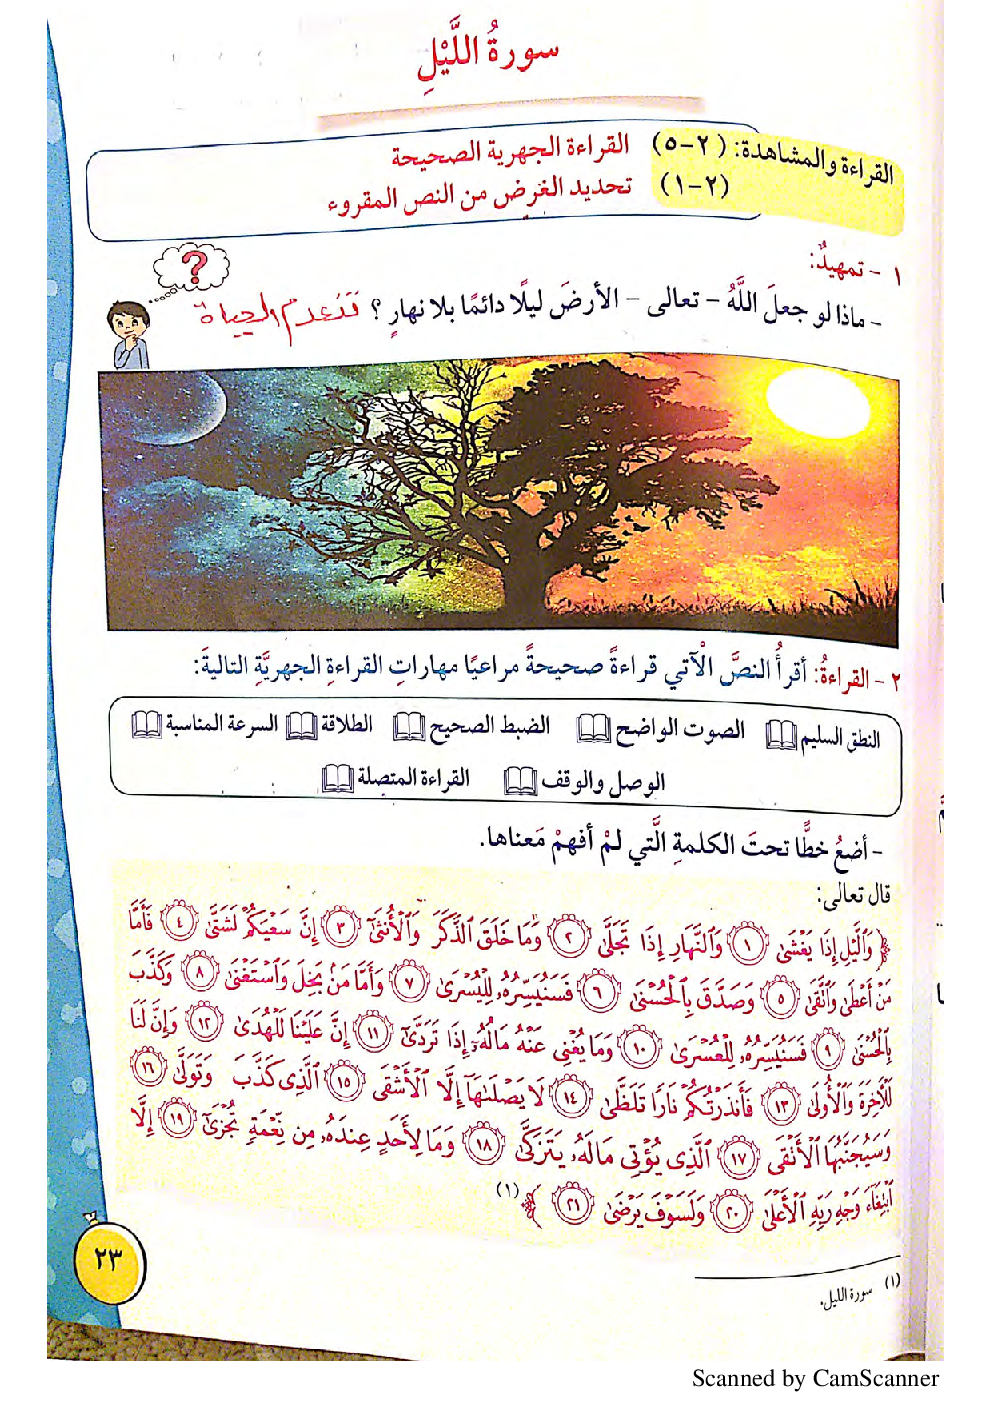 سورةُ اللَّيْلِ
القراءة والمشاهدة: (٢-٥) القراءة الجهرية الصحيحة
(٢-١) تحديد الغرض من النص المقروء
١ - تمهيدٌ:
- ماذا لو جعلَ اللَّهُ - تعالى - الأرضَ ليلًا دائمًا بلا نهارٍ؟ تنعدم الحياة
?
٢ - القراءةُ: أقرأُ النصَّ الْآتي قراءةً صحيحةً مراعيًا مهاراتِ القراءةِ الجهريَّةِ التاليةَ:
النطق السليم الصوت الواضح الضبط الصحيح الطلاقة السرعة المناسبة
الوصل والوقف القراءة المتصلة
- أضعُ خطًّا تحتَ الكلمةِ الَّتي لمْ أفهمْ مَعناها.
قال تعالى:
﴿ وَٱلَّيْلِ إِذَا يَغْشَىٰ ١ وَٱلنَّهَارِ إِذَا تَجَلَّىٰ ٢ وَمَا خَلَقَ ٱلذَّكَرَ وَٱلْأُنثَىٰٓ ٣ إِنَّ سَعْيَكُمْ لَشَتَّىٰ ٤ فَأَمَّا
مَنْ أَعْطَىٰ وَٱتَّقَىٰ ٥ وَصَدَّقَ بِٱلْحُسْنَىٰ ٦ فَسَنُيَسِّرُهُۥ لِلْيُسْرَىٰ ٧ وَأَمَّا مَنۢ بَخِلَ وَٱسْتَغْنَىٰ ٨ وَكَذَّبَ
بِٱلْحُسْنَىٰ ٩ فَسَنُيَسِّرُهُۥ لِلْعُسْرَىٰ ١٠ وَمَا يُغْنِى عَنْهُ مَالُهُۥٓ إِذَا تَرَدَّىٰٓ ١١ إِنَّ عَلَيْنَا لَلْهُدَىٰ ١٢ وَإِنَّ لَنَا
لَلْأَخِرَةَ وَٱلْأُولَىٰ ١٣ فَأَنذَرْتُكُمْ نَارًا تَلَظَّىٰ ١٤ لَا يَصْلَىٰهَآ إِلَّا ٱلْأَشْقَى ١٥ ٱلَّذِى كَذَّبَ وَتَوَلَّىٰ ١٦
وَسَيُجَنَّبُهَا ٱلْأَتْقَى ١٧ ٱلَّذِى يُؤْتِى مَالَهُۥ يَتَزَكَّىٰ ١٨ وَمَا لِأَحَدٍ عِندَهُۥ مِن نِّعْمَةٍ تُجْزَىٰٓ ١٩ إِلَّا
ٱبْتِغَآءَ وَجْهِ رَبِّهِ ٱلْأَعْلَىٰ ٢٠ وَلَسَوْفَ يَرْضَىٰ ٢١ ﴾ (١)
(١) سورة الليل.
٢٣
Scanned by CamScanner